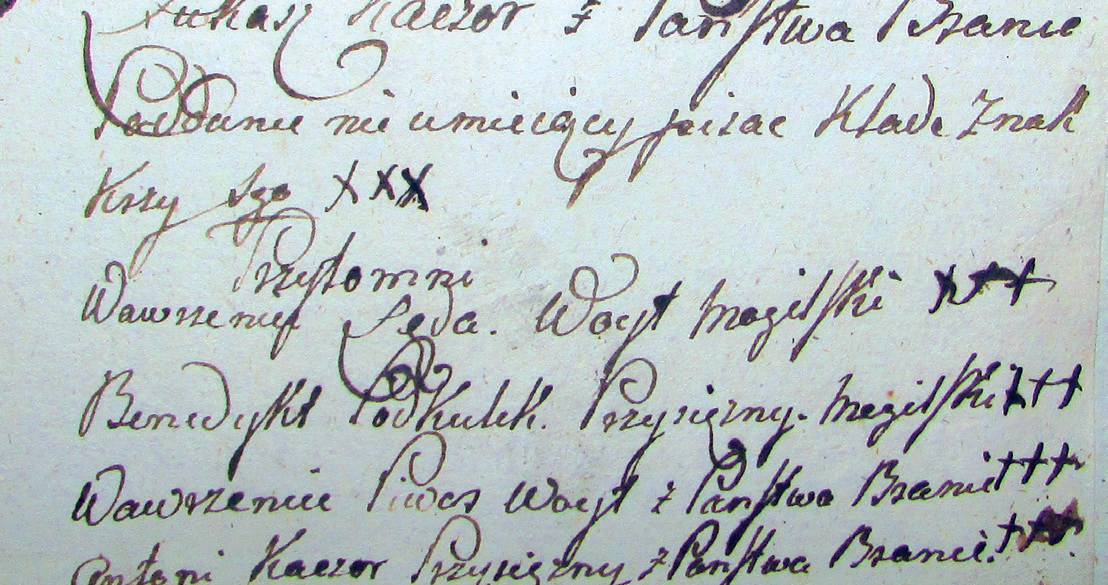 Łukasz Kaczor z Państwa Branic
Poddanie nie umieiący pisac Kłade Znak
Krzy szo xxx
Przytomni
Wawrzeniec Lęda. Woyt Mogilski xxx
Benedykt Podkulek. Przysiężny. Mogilski +++
Wawrzeniec Piwos Woyt z Państwa Branic +++
Antoni Kaczor Przysiężny z Państwa Branic. +++